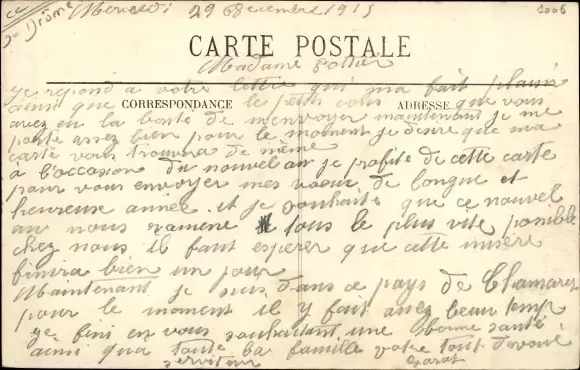 ce
Drôme Mercredi 29 Decembre 1915
CARTE POSTALE
Madame Pottier
Je repond a votre lettre qui ma fait plaisir
ainsi que CORRESPONDANCE le petit colis ADRESSE que vous
avez eu la bonté de menvoyer maintenant je me
porte assez bien pour le moment je desire que ma
carte vous trouvera de même
a l'occassion du nouvel an je profite de cette carte
pour vous envoyer mes voeux de longue et
heureuse année. et je souhaite que ce nouvel
an nous ramene tous le plus vite possible
chez nous il faut esperer que cette misère
finira bien un jour
Maintenant je suis dans ce pays de Chamaret
pour le moment il y fait assez beau temp
je fini en vous souhaitant une bonne santé
ainsi qua toute la famille votre tout dévoué
serviteur